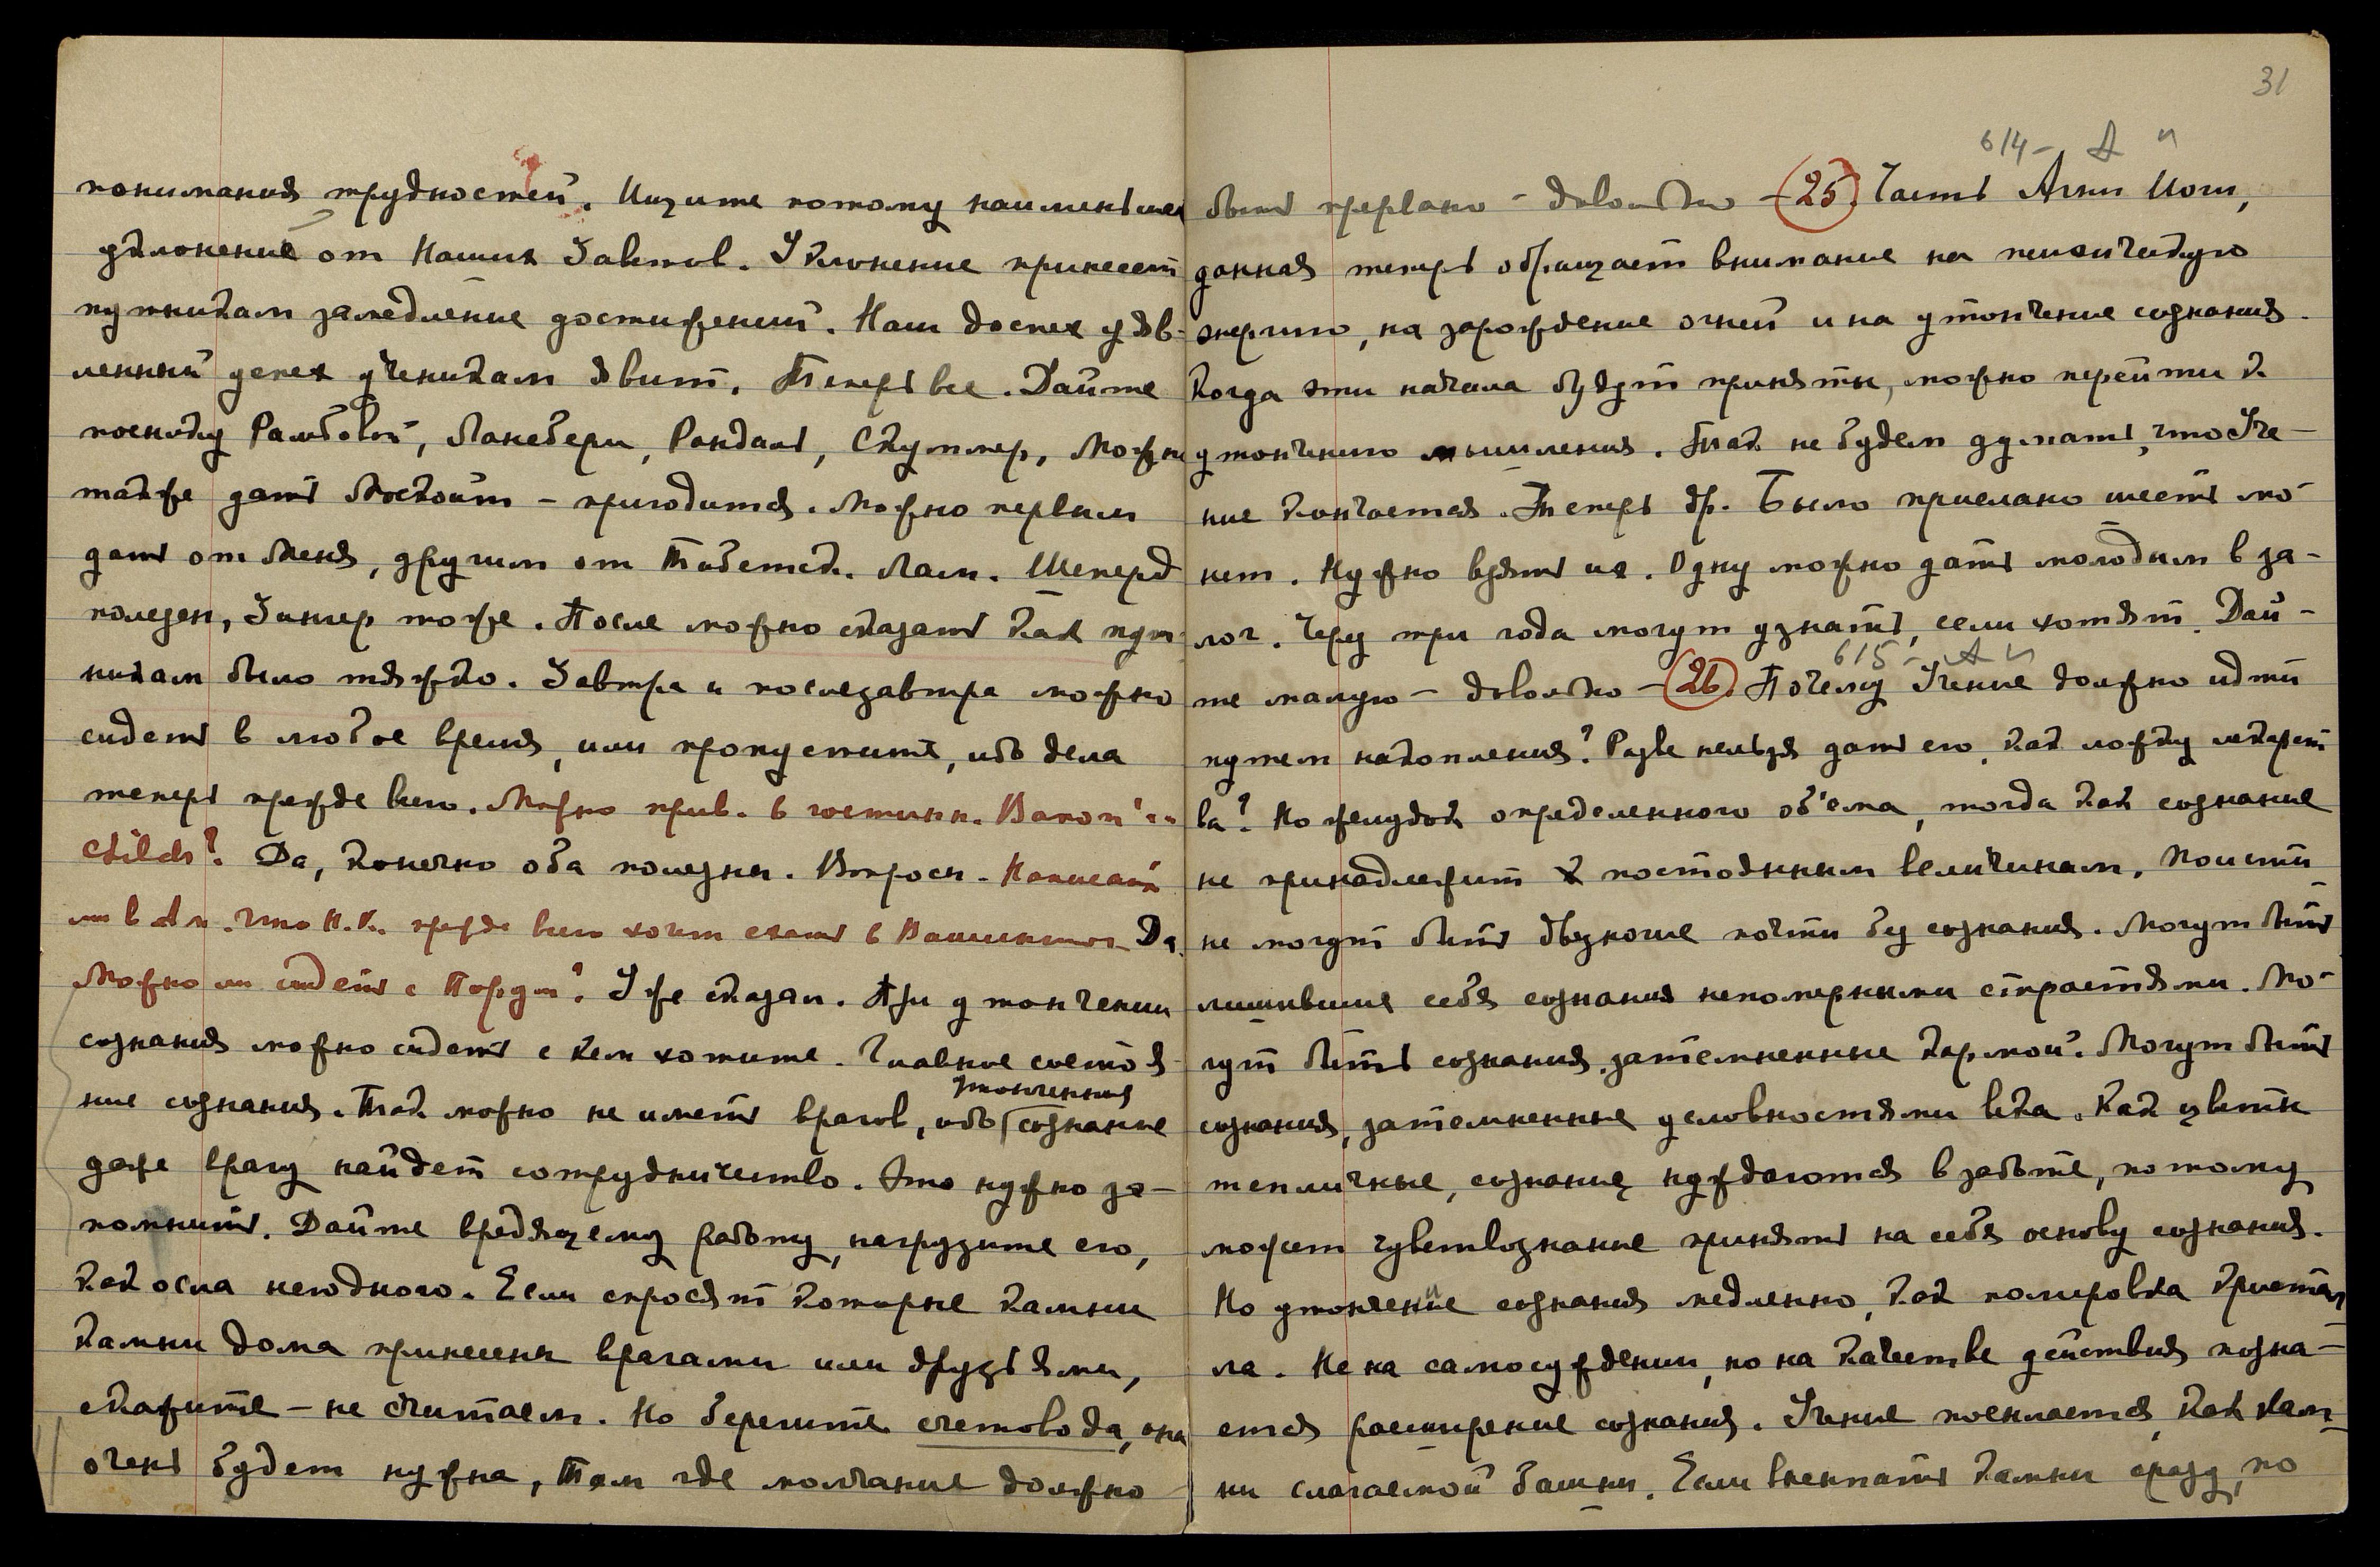 понимания трудностей. Ищите потому наименьшее
уклонение от Наших Заветов. Уклонение принесет
путникам замедление достижений. Наш доспех удв-
ленный успех ученикам явит. Теперь все. Дайте
посылку Рамбовой, Лансбери, Рандаль, Скуллер, Можно
также дать Москвит - пригодится. Можно первым
дать от Меня, другим от Тибетск. Лам. Шеперд
полезен, Зингер тоже. После можно сказать как пут-
никам было тяжко. Завтра и послезавтра можно
сидеть в любое время, или пропустить, ибо дела
теперь прежде всего. Можно прив. в гостинн.
Да, конечно оба полезны. Вопросы. Написать
ли в Ам. что Н.К. прежде всего хочет ехать в Вашингтон Да.
Можно ли сидеть с Уже сказал. При утончении
сознания можно сидеть с кем хотите. Главное состоя-
утонченния
ние сознания. Так можно не иметь врагов, ибо сознание
даже врагу найдет сотрудничество. Это нужно за-
помнить. Дайте вредящему работу, нагрузите его,
как осла негодного. Если спросят которые камни
камни дома принесены врагами или друзьями,
скажите - не считаем. Но берегите счетовода, она
очень будет нужна, Там где молчание должно
31
614 - А и
быть прервано - довольно - 25. Часть Агни Йоги,
данная теперь обращает внимание на психическую
энергию, на зарождение огней и на утончение сознания.
Когда эти начала будут приняты, можно перейти к
утончению мышления. Так не будем думать, что Уче-
ние кончается. Теперь др. Было прислано шесть мо-
нет. Нужно взять их. Одну можно дать молодым в за-
лог. Через три года могут узнать, если хотят. Дай-
615 - А и
те малую - довольно - 26. Почему Учение должно идти
путем накопления? Разве нельзя дать его, как ложку лекарст
ва? Но желудок определенного об'ема, тогда как сознание
не принадлежит к постоянным величинам. Поистине
не могут быть двуногие почти без сознания. Могут быть
лишившие себя сознания непомерными страстями. Мо-
гут быть сознания, затемненные кармой. Могут быть
сознания, затемненные условностями века. Как цветы
тепличные, сознание нуждаются в заботе, потому
может чувствознание принять на себя основу сознания.
Но утончение сознания медленно, как полировка кристал
ла. Не на самосуждении, но на качестве действия позна-
ется расширение сознания. Учение посылается, как кам-
ни слагаемой башни. Если вкопать камни сразу, то